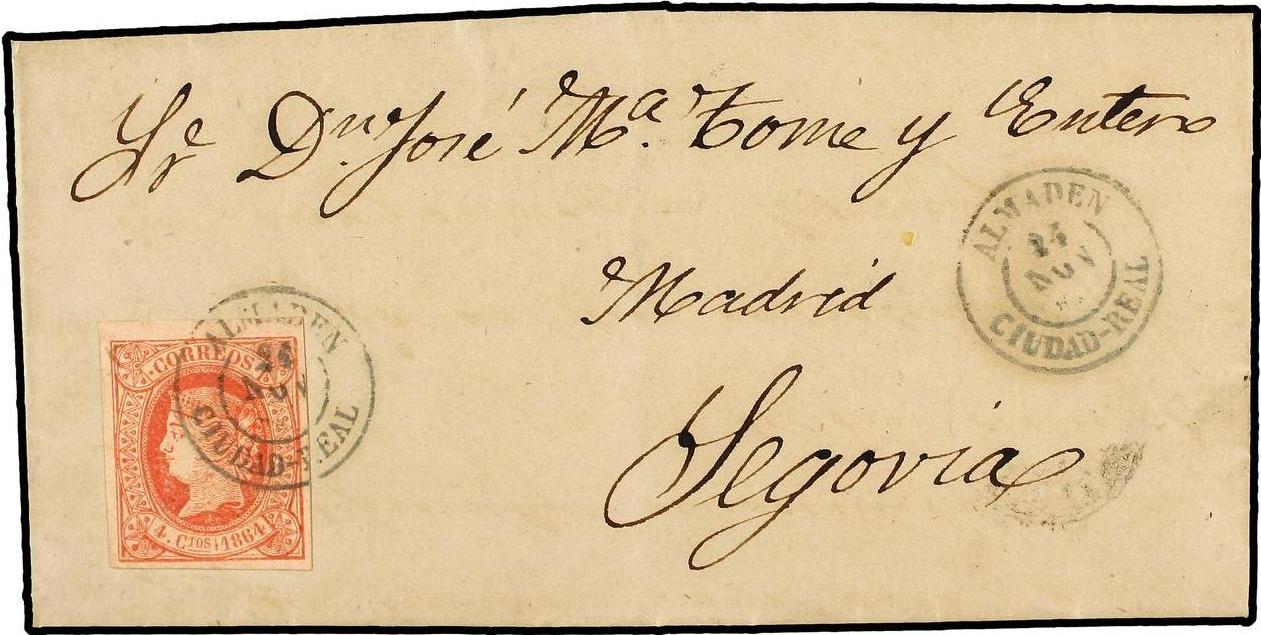 Sr Dn José Mª Tome y Entero
Madrid
Segovia
ALMADEN
24
NOV
CIUDAD-REAL
ALMADEN
24
NOV
CIUDAD-REAL
CORREOS
4. CTOS 1864